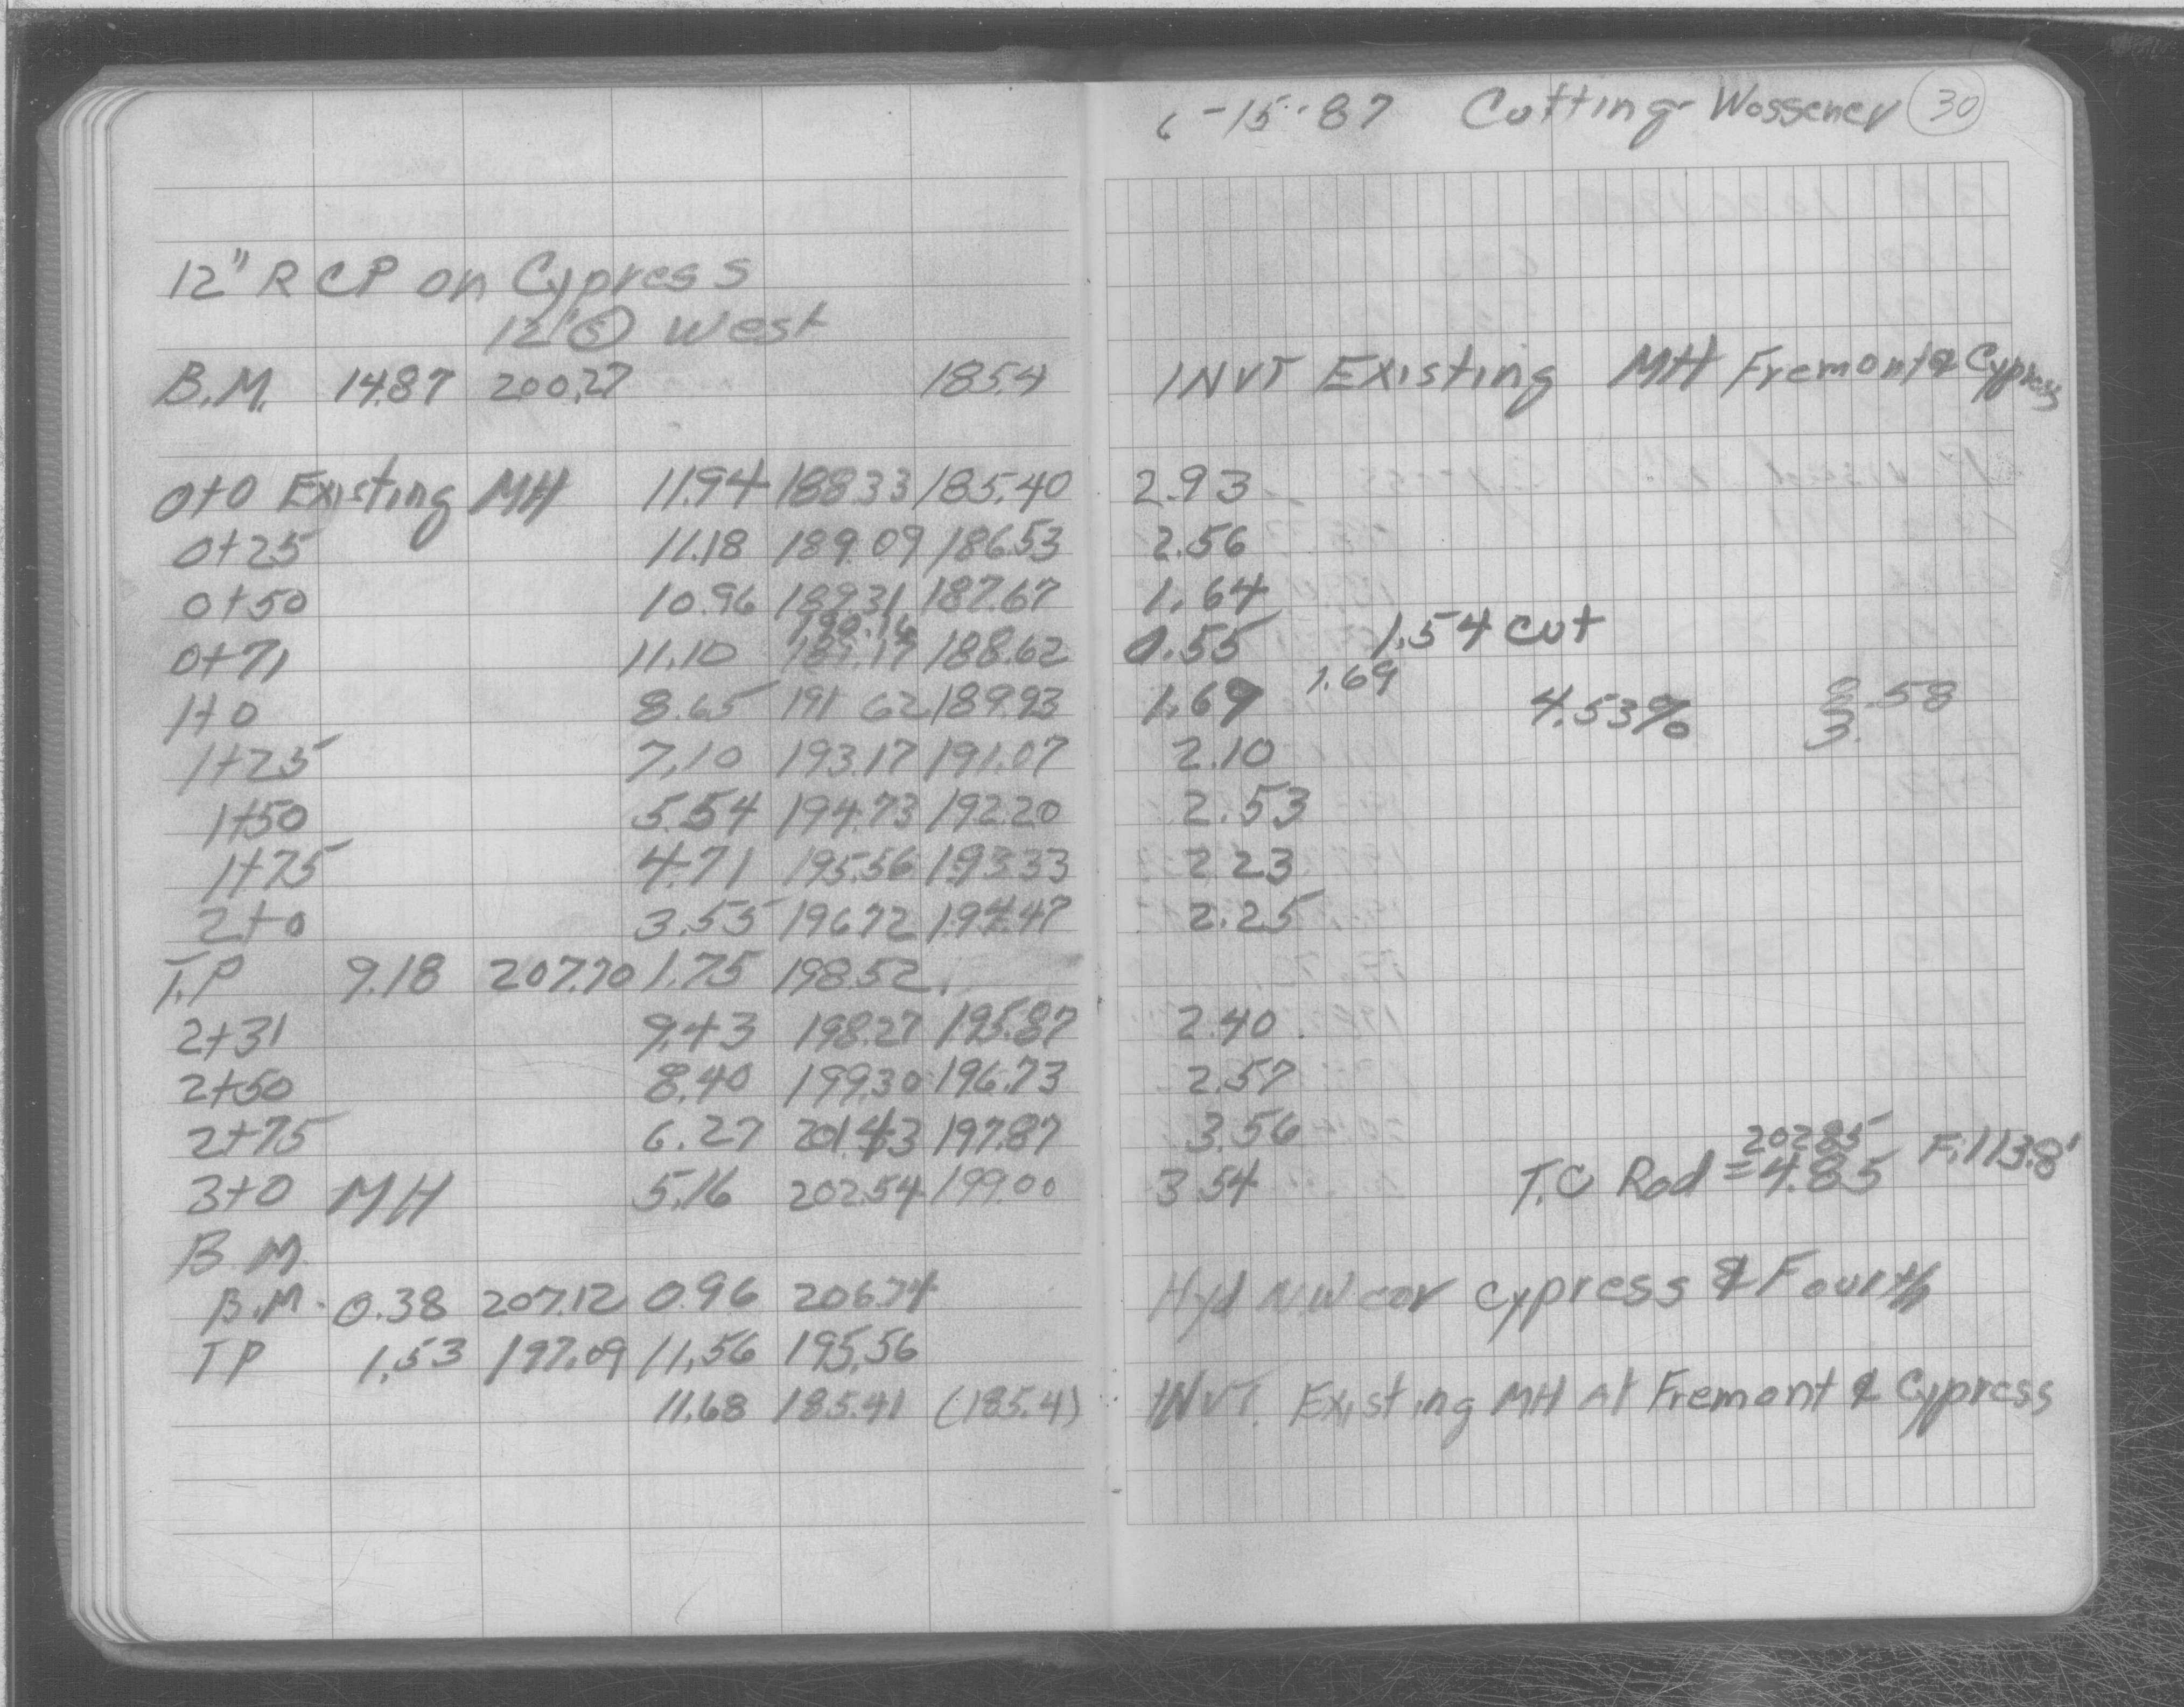 6-15-87 Cotting-Wossener 30
12" RCP on Cypress
12' Ⓢ West
B.M. 14.87 200.27 185.4 INVT Existing MH Fremont & Cypress
0+0 Existing MH 11.94 188.33 185.40 2.93
0+25 11.18 189.09 186.53 2.56
0+50 10.96 189.31 187.67 1.64
190.16
0+71 11.10 189.17 188.62 0.55 1.54 cut
1+0 8.65 191.62 189.93 1.69 1.69 4.53% 8.58
3.
1+25 7.10 193.17 191.07 2.10
1+50 5.54 194.73 192.20 2.53
1+75 4.71 195.56 193.33 2.23
2+0 3.55 196.72 194.47 2.25
T.P 9.18 207.70 1.75 198.52
2+31 9.43 198.27 195.87 2.40
2+50 8.40 199.30 196.73 2.57
2+75 6.27 201.43 197.87 3.56
202.85
3+0 MH 5.16 202.54 199.00 3.54 T.C Rod = 4.85 Fill 3.8'
B.M.
B.M. 0.38 207.12 0.96 206.74 Hyd NW cor Cypress & Fourth
TP 1.53 197.09 11.56 195.56
11.68 185.41 (185.4) INVT. Existing MH at Fremont & Cypress